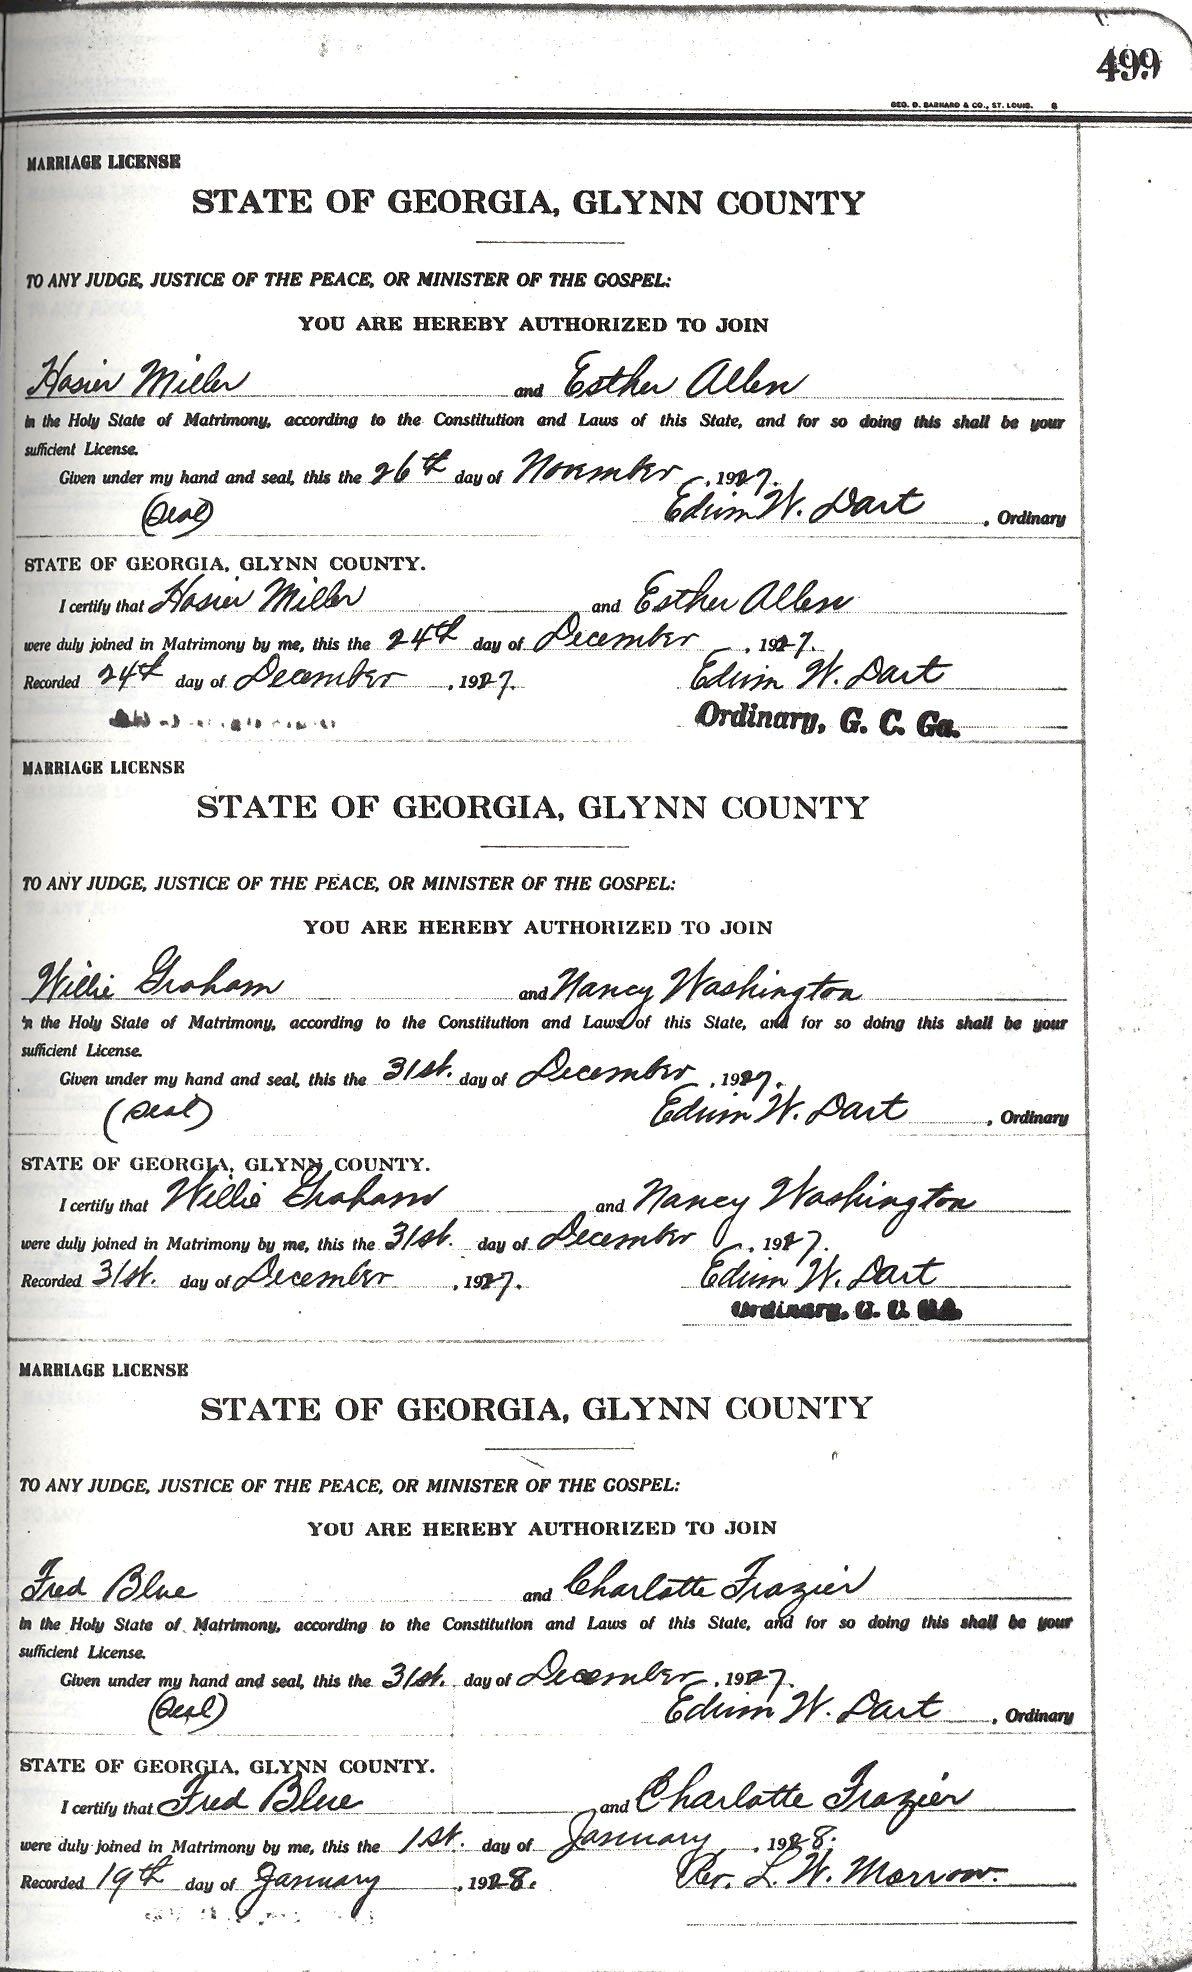 499
GEO. D. BARNARD & CO., ST. LOUIS. 8
MARRIAGE LICENSE
STATE OF GEORGIA, GLYNN COUNTY
TO ANY JUDGE, JUSTICE OF THE PEACE, OR MINISTER OF THE GOSPEL:
YOU ARE HEREBY AUTHORIZED TO JOIN
Hosier Miller and Esther Allen
in the Holy State of Matrimony, according to the Constitution and Laws of this State, and for so doing this shall be your
sufficient License.
Given under my hand and seal, this the 26th day of November, 1927.
(Seal) Edwin W. Dart, Ordinary
STATE OF GEORGIA, GLYNN COUNTY.
I certify that Hosier Miller and Esther Allen
were duly joined in Matrimony by me, this the 24th day of December, 1927.
Recorded 24th day of December, 1927. Edwin W. Dart
Ordinary, G. C. Ga.
MARRIAGE LICENSE
STATE OF GEORGIA, GLYNN COUNTY
TO ANY JUDGE, JUSTICE OF THE PEACE, OR MINISTER OF THE GOSPEL:
YOU ARE HEREBY AUTHORIZED TO JOIN
Willie Graham and Nancy Washington
in the Holy State of Matrimony, according to the Constitution and Laws of this State, and for so doing this shall be your
sufficient License.
Given under my hand and seal, this the 31st. day of December, 1927.
(Seal) Edwin W. Dart, Ordinary
STATE OF GEORGIA, GLYNN COUNTY.
I certify that Willie Graham and Nancy Washington
were duly joined in Matrimony by me, this the 31st. day of December, 1927.
Recorded 31st. day of December, 1927. Edwin W. Dart
Ordinary, G. C.
MARRIAGE LICENSE
STATE OF GEORGIA, GLYNN COUNTY
TO ANY JUDGE, JUSTICE OF THE PEACE, OR MINISTER OF THE GOSPEL:
YOU ARE HEREBY AUTHORIZED TO JOIN
Fred Blue and Charlotte Frazier
in the Holy State of Matrimony, according to the Constitution and Laws of this State, and for so doing this shall be your
sufficient License.
Given under my hand and seal, this the 31st. day of December, 1927.
(Seal) Edwin W. Dart, Ordinary
STATE OF GEORGIA, GLYNN COUNTY.
I certify that Fred Blue and Charlotte Frazier
were duly joined in Matrimony by me, this the 1st. day of January, 1928.
Recorded 19th day of January, 1928. Rev. L. W. Morrow.